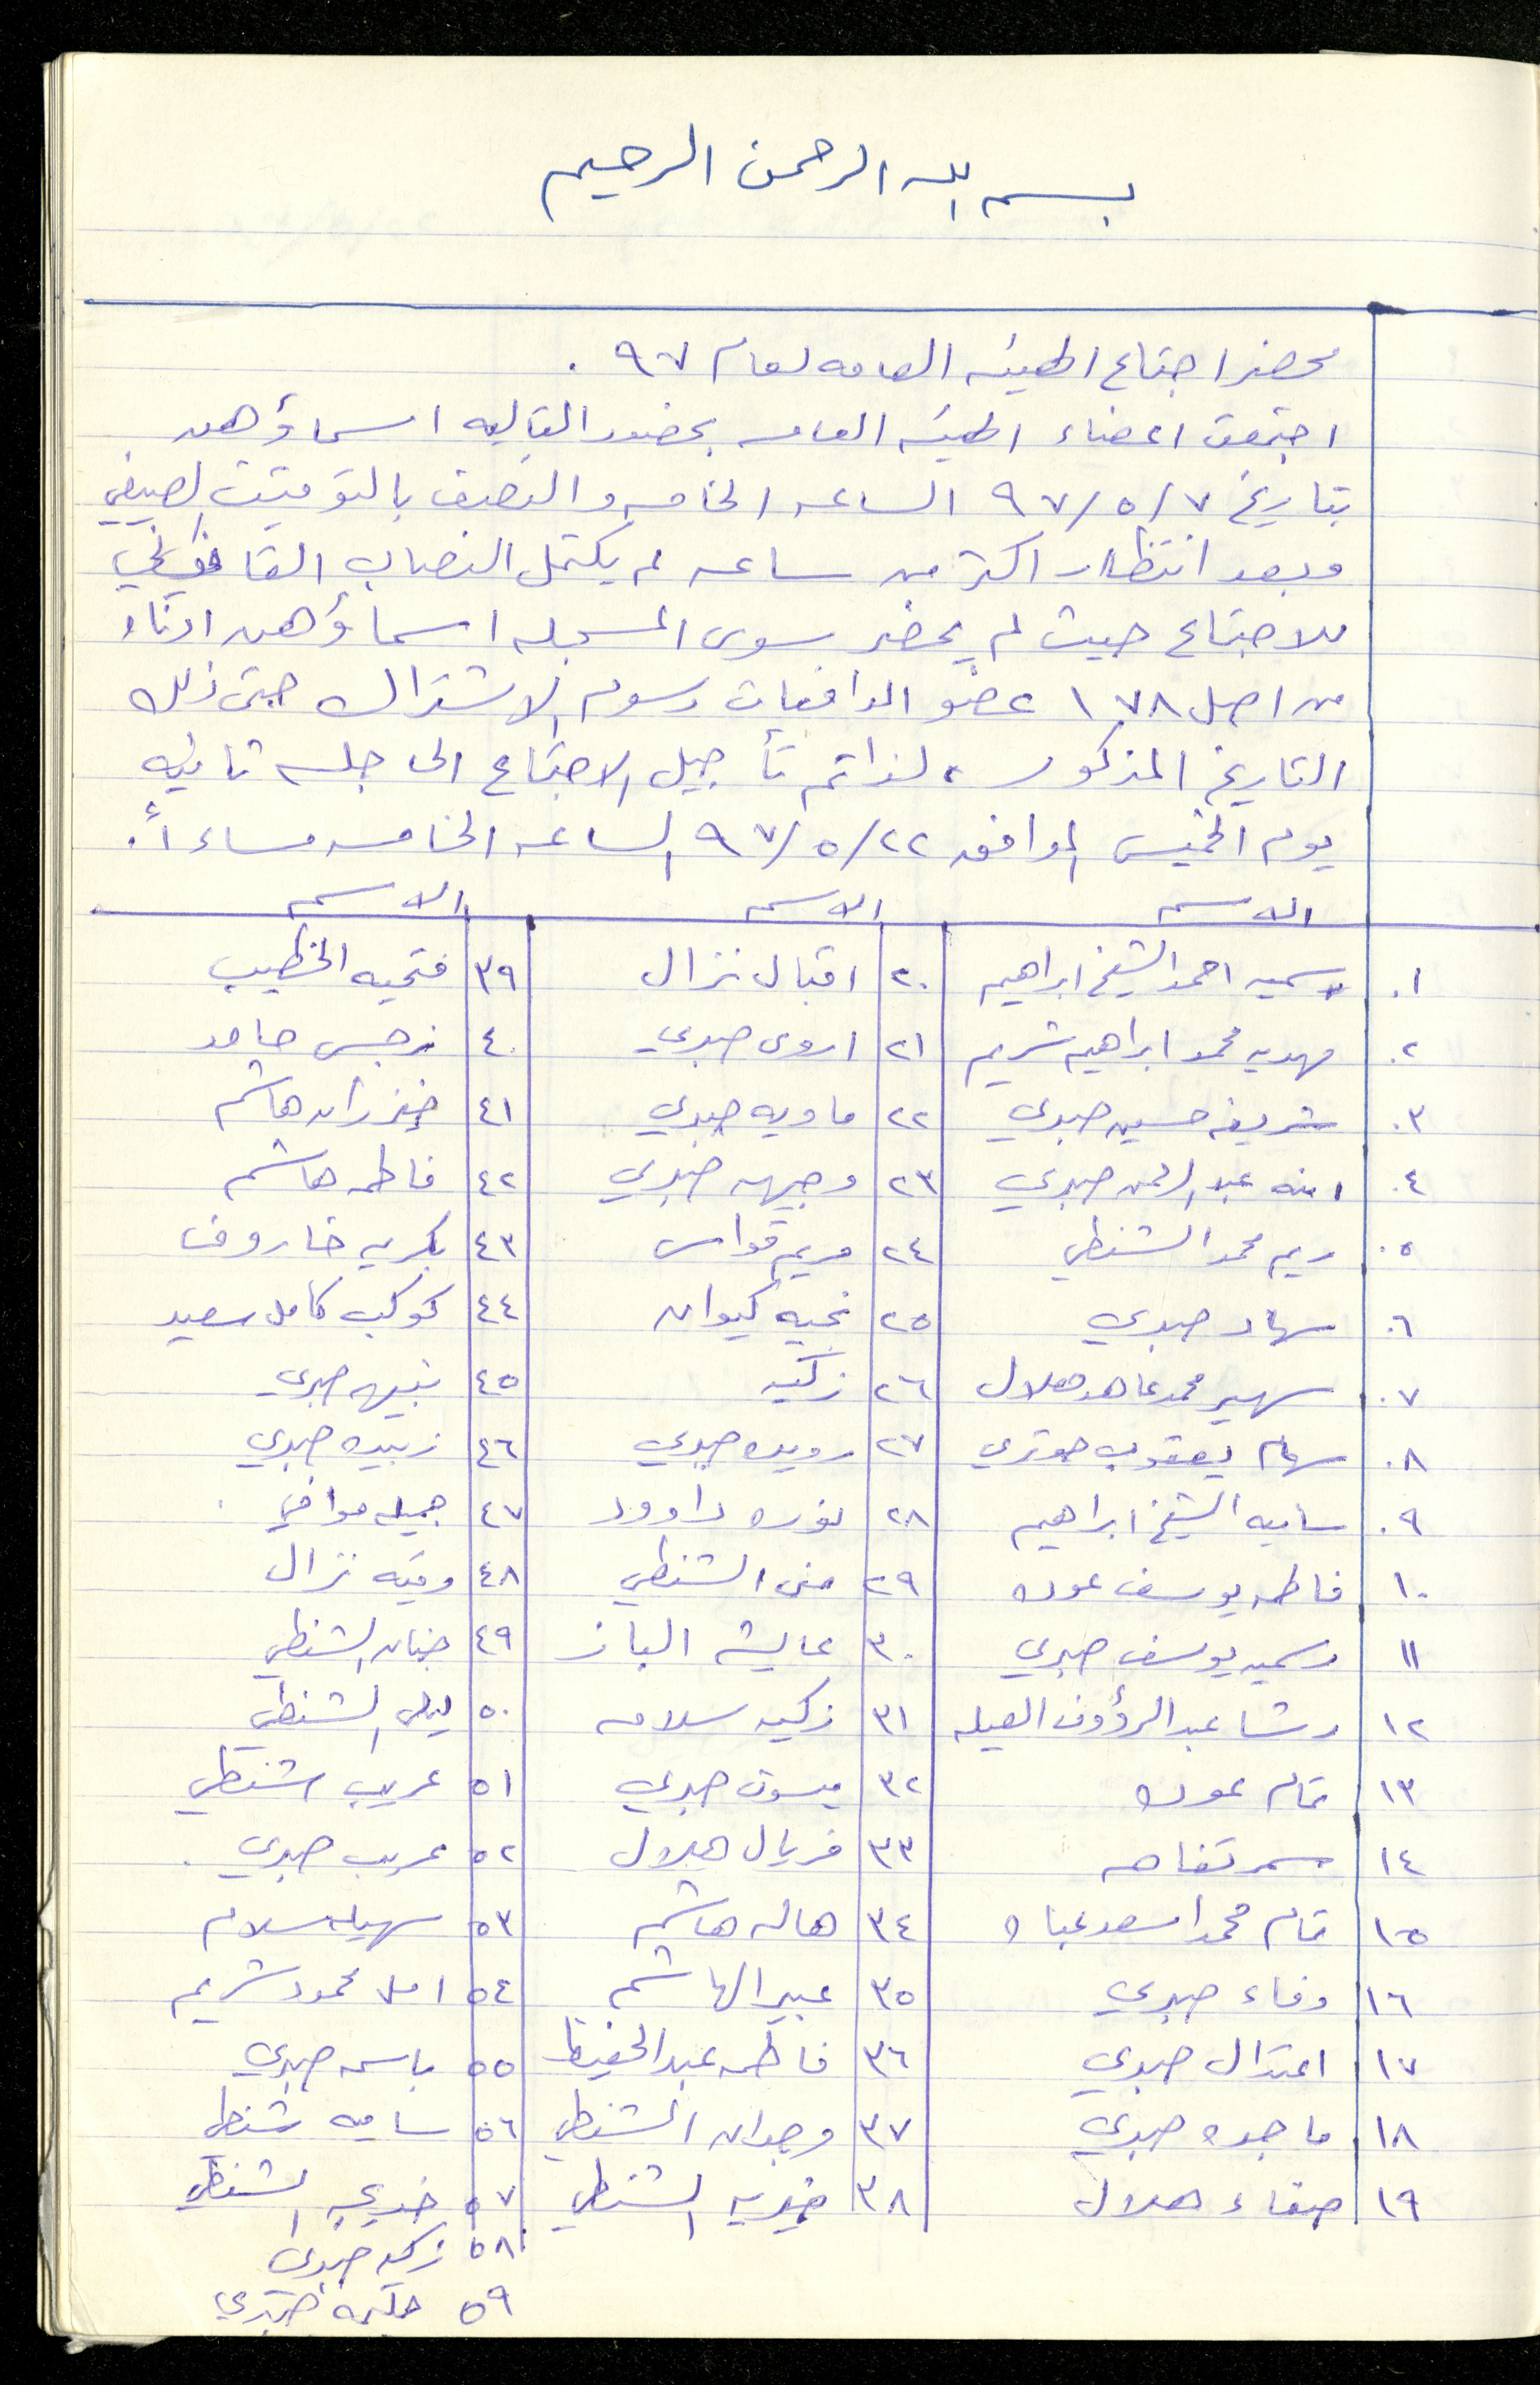 بسم الله الرحمن الرحيم
محضر اجتماع الهيئه العامه لعام ٩٧ .
اجتمعت اعضاء الهيئه العامه بحضور التاليه اسماؤهن
بتاريخ ٩٧/٥/٧ الساعه الخامسه والنصف بالتوقيت الصيفي
وبعد انتظار اكثر من ساعه لم يكتمل النصاب القانوني
للاجتماع حيث لم يحضر سوى المسجله اسماؤهن ادناه
من اصل ١٧٨ عضو الدافعات رسوم الاشتراك حتى ذلك
التاريخ المذكور، لذا تم تأجيل الاجتماع الى جلسه ثانيه
يوم الخميس الموافق ٩٧/٥/٢٢ الساعه الخامسه مساءاً.
الاسم الاسم الاسم
١. رسميه احمد الشيخ ابراهيم ٢٠ اقبال نزال ٣٩ فتحيه الخطيب
٢. مهديه محمد ابراهيم شريم ٢١ اروى صبري ٤٠ نرجس حامد
٣. شريفه حسين صبري ٢٢ ماويه صبري ٤١ خيزران هاشم
٤. امنه عبد الرحمن صبري ٢٣ وجيهه صبري ٤٢ فاطمه هاشم
٥. ريم محمد الشنطي ٢٤ مريم قواس ٤٣ بكريه خاروف
٦. سهاد صبري ٢٥ نجيه كيوان ٤٤ كوكب كامل سعيد
٧. سهير محمد عاهد هلال ٢٦ زكيه ٤٥ نبيهه صبري
٨. سهام يعقوب حوتري ٢٧ رويده صبري ٤٦ زبيده صبري
٩. ساميه الشيخ ابراهيم ٢٨ نوره داوود ٤٧ جميله موافي
١٠ فاطمه يوسف عوده ٢٩ منى الشنطي ٤٨ رقيه نزال
١١ رسميه يوسف صبري ٣٠ عايشه الباز ٤٩ حنان الشنطي
١٢ رشا عبد الرؤوف العيله ٣١ زكيه سلامه ٥٠ ليلى الشنطي
١٣ تمام عوده ٣٢ ميسون صبري ٥١ عريب شنطي
١٤ سمر تفاحه ٣٣ فريال هلال ٥٢ عريب صبري
١٥ تمام محمد اسعد عباه ٣٤ هاله هاشم ٥٣ سهيله سلام
١٦ وفاء صبري ٣٥ عبير الهاشم ٥٤ امل محمود شريم
١٧ اعتدال صبري ٣٦ فاطمه عبد الحفيظ ٥٥ باسمه صبري
١٨ ماجده صبري ٣٧ وجدان الشنطي ٥٦ ساميه شنطي
١٩ صفاء هلال ٣٨ خيريه الشنطي ٥٧ خديجه الشنطي
٥٨ زكيه صبري
٥٩ حكيمه صبري